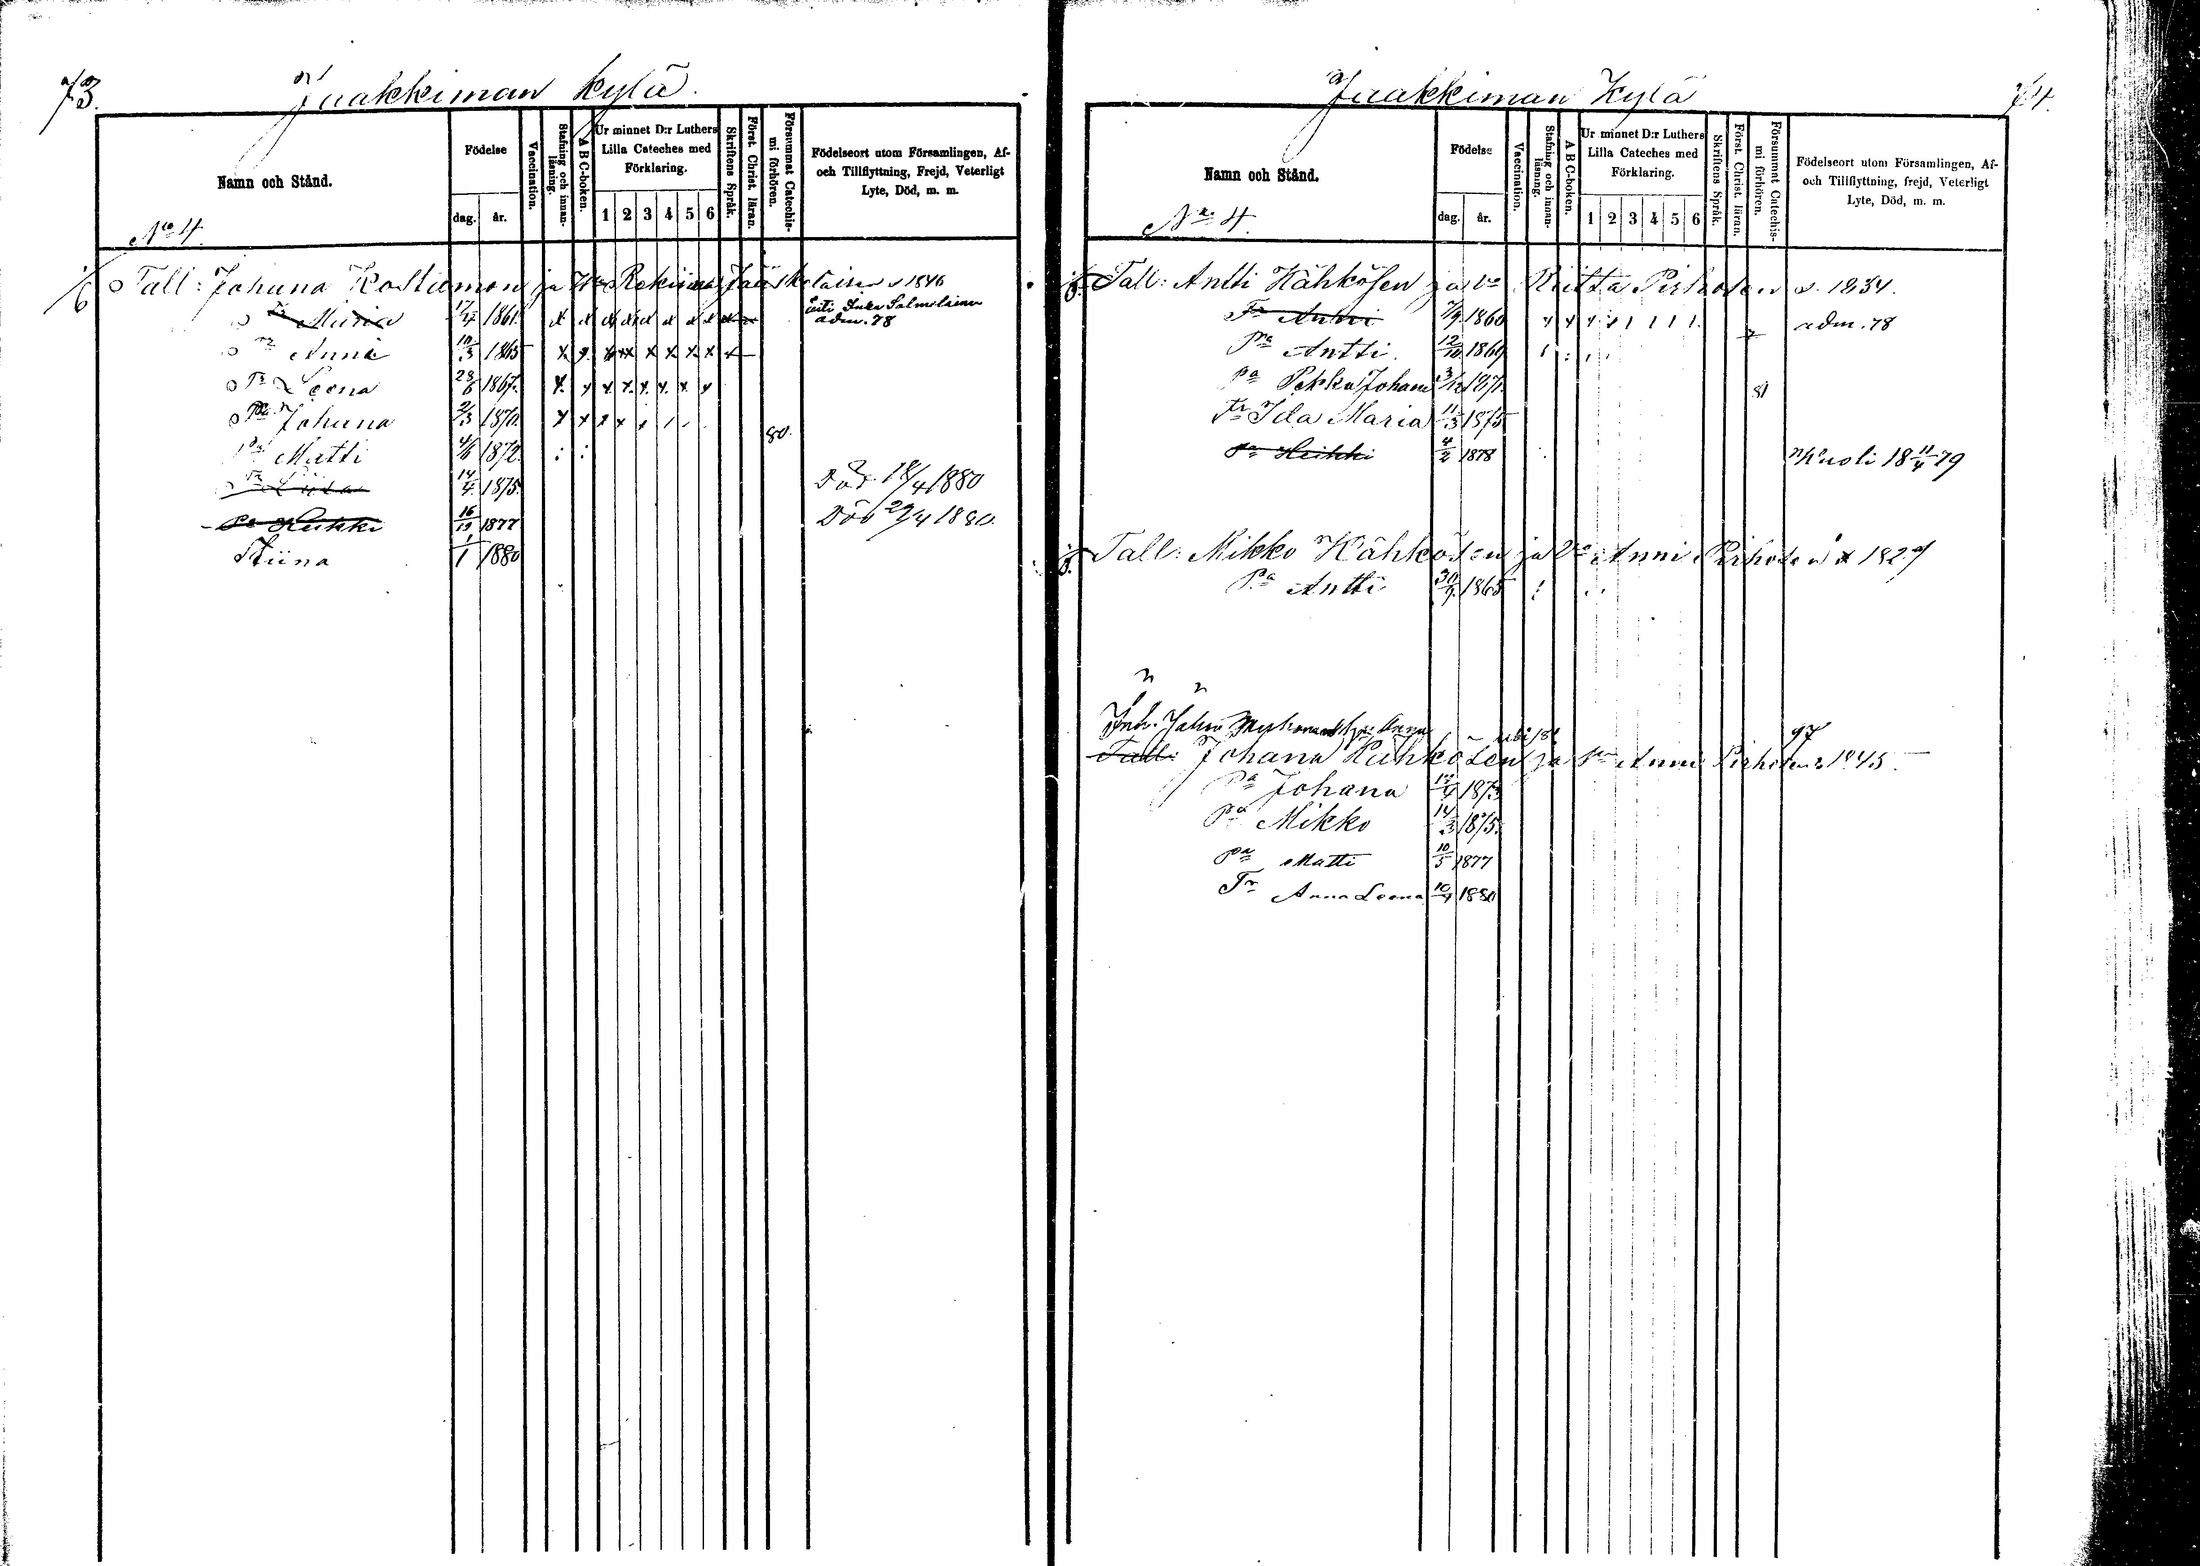 73.
Jaakkiman kylä.
Namn och Stånd.
Födelse
dag. år.
Vaccination.
Stafning och innanläsning.
A B C-boken.
Ur minnet D:r Luthers Lilla Cateches med Förklaring.
1 2 3 4 5 6
Skriftens Språk.
Först. Christ. läran.
Försummat Catechismi förhören.
Födelseort utom Församlingen, Af- och Tillflyttning, Frejd, Veterligt Lyte, Död, m. m.
No 4.
Tall: Johana Kostiamon ja Rekina Jääskeläisen s 1846
Tr Maria 17/4 1861. x x x x x x x x adm. 78
Tr Anni 10/3 1865 x x x x x x x x
Tr Leena 23/6 1867. x x x x x x x x
Pa Johana 2/3 1870. x x x x
Pa Matti 4/6 1872. 80.
Tr Liisa 14/4 1875. Död 18/4 1880
Pa Heikki 1877 Död 29/4 1880.
Stiina 1/1 1880
Jaakkiman Kylä
74.
Namn och Stånd.
Födelse
dag. år.
Vaccination.
Stafning och innanläsning.
A B C-boken.
Ur minnet D:r Luthers Lilla Cateches med Förklaring.
1 2 3 4 5 6
Skriftens Språk.
Först. Christ. läran.
Försummat Catechismi förhören.
Födelseort utom Församlingen, Af- och Tillflyttning, frejd, Veterligt Lyte, Död, m. m.
No 4.
Tall: Antti Kähkösen ja Va Riitta Pirhosen s. 1834.
Tr Anni 7/9 1860 adm. 78
Pa Antti. 12/10 1869
Pa Pekka Johana 3/12 1871. 81
Tr Ida Maria 11/3 1875
Pa Heikki 4/2 1878 kuoli 18 11/4 79
Tall: Mikko Kähkösen ja Va Anni Pirhosen 1827
Pa Antti 30/9 1865
Tall: Johana Kähkösen ja Anni Pirhosen 1845
Pa Johana 1873
Pa Mikko 14/3 1875.
Pa Matti 10/5 1877
Tr Anna Leena 1880